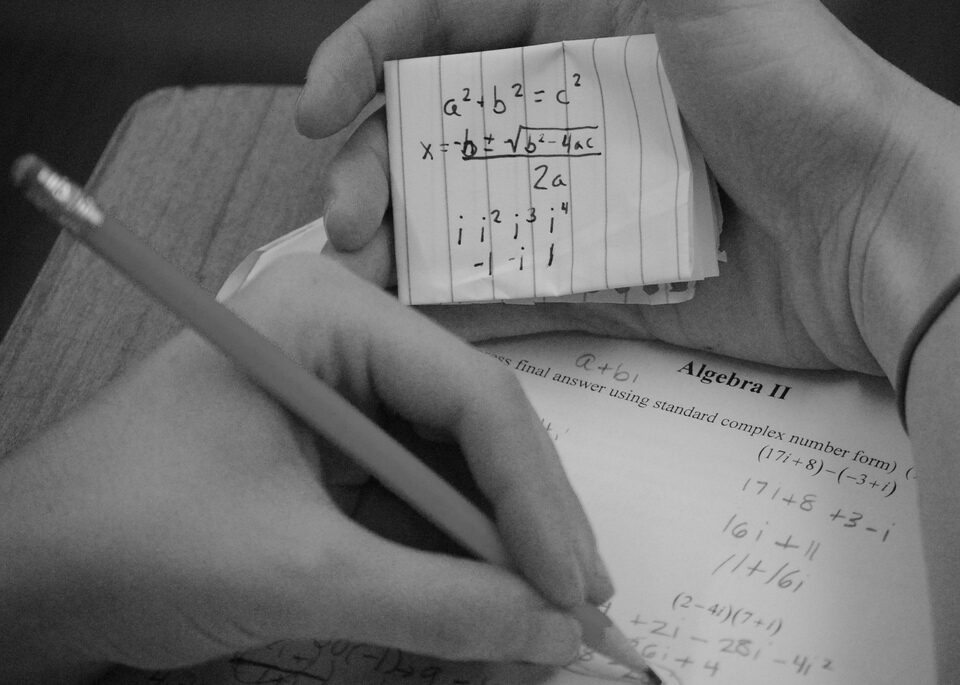 a² + b² = c²
x = -b ± √b² - 4ac
2a
i i² i³ i⁴
-1 -i 1
a+bi
Algebra II
final answer using standard complex number form)
(17i+8)-(-3+i)
17i+8 +3-i
16i + 11
11+16i
(2-4i)(7+i)
+2i - 28i - 4i²
26i + 4